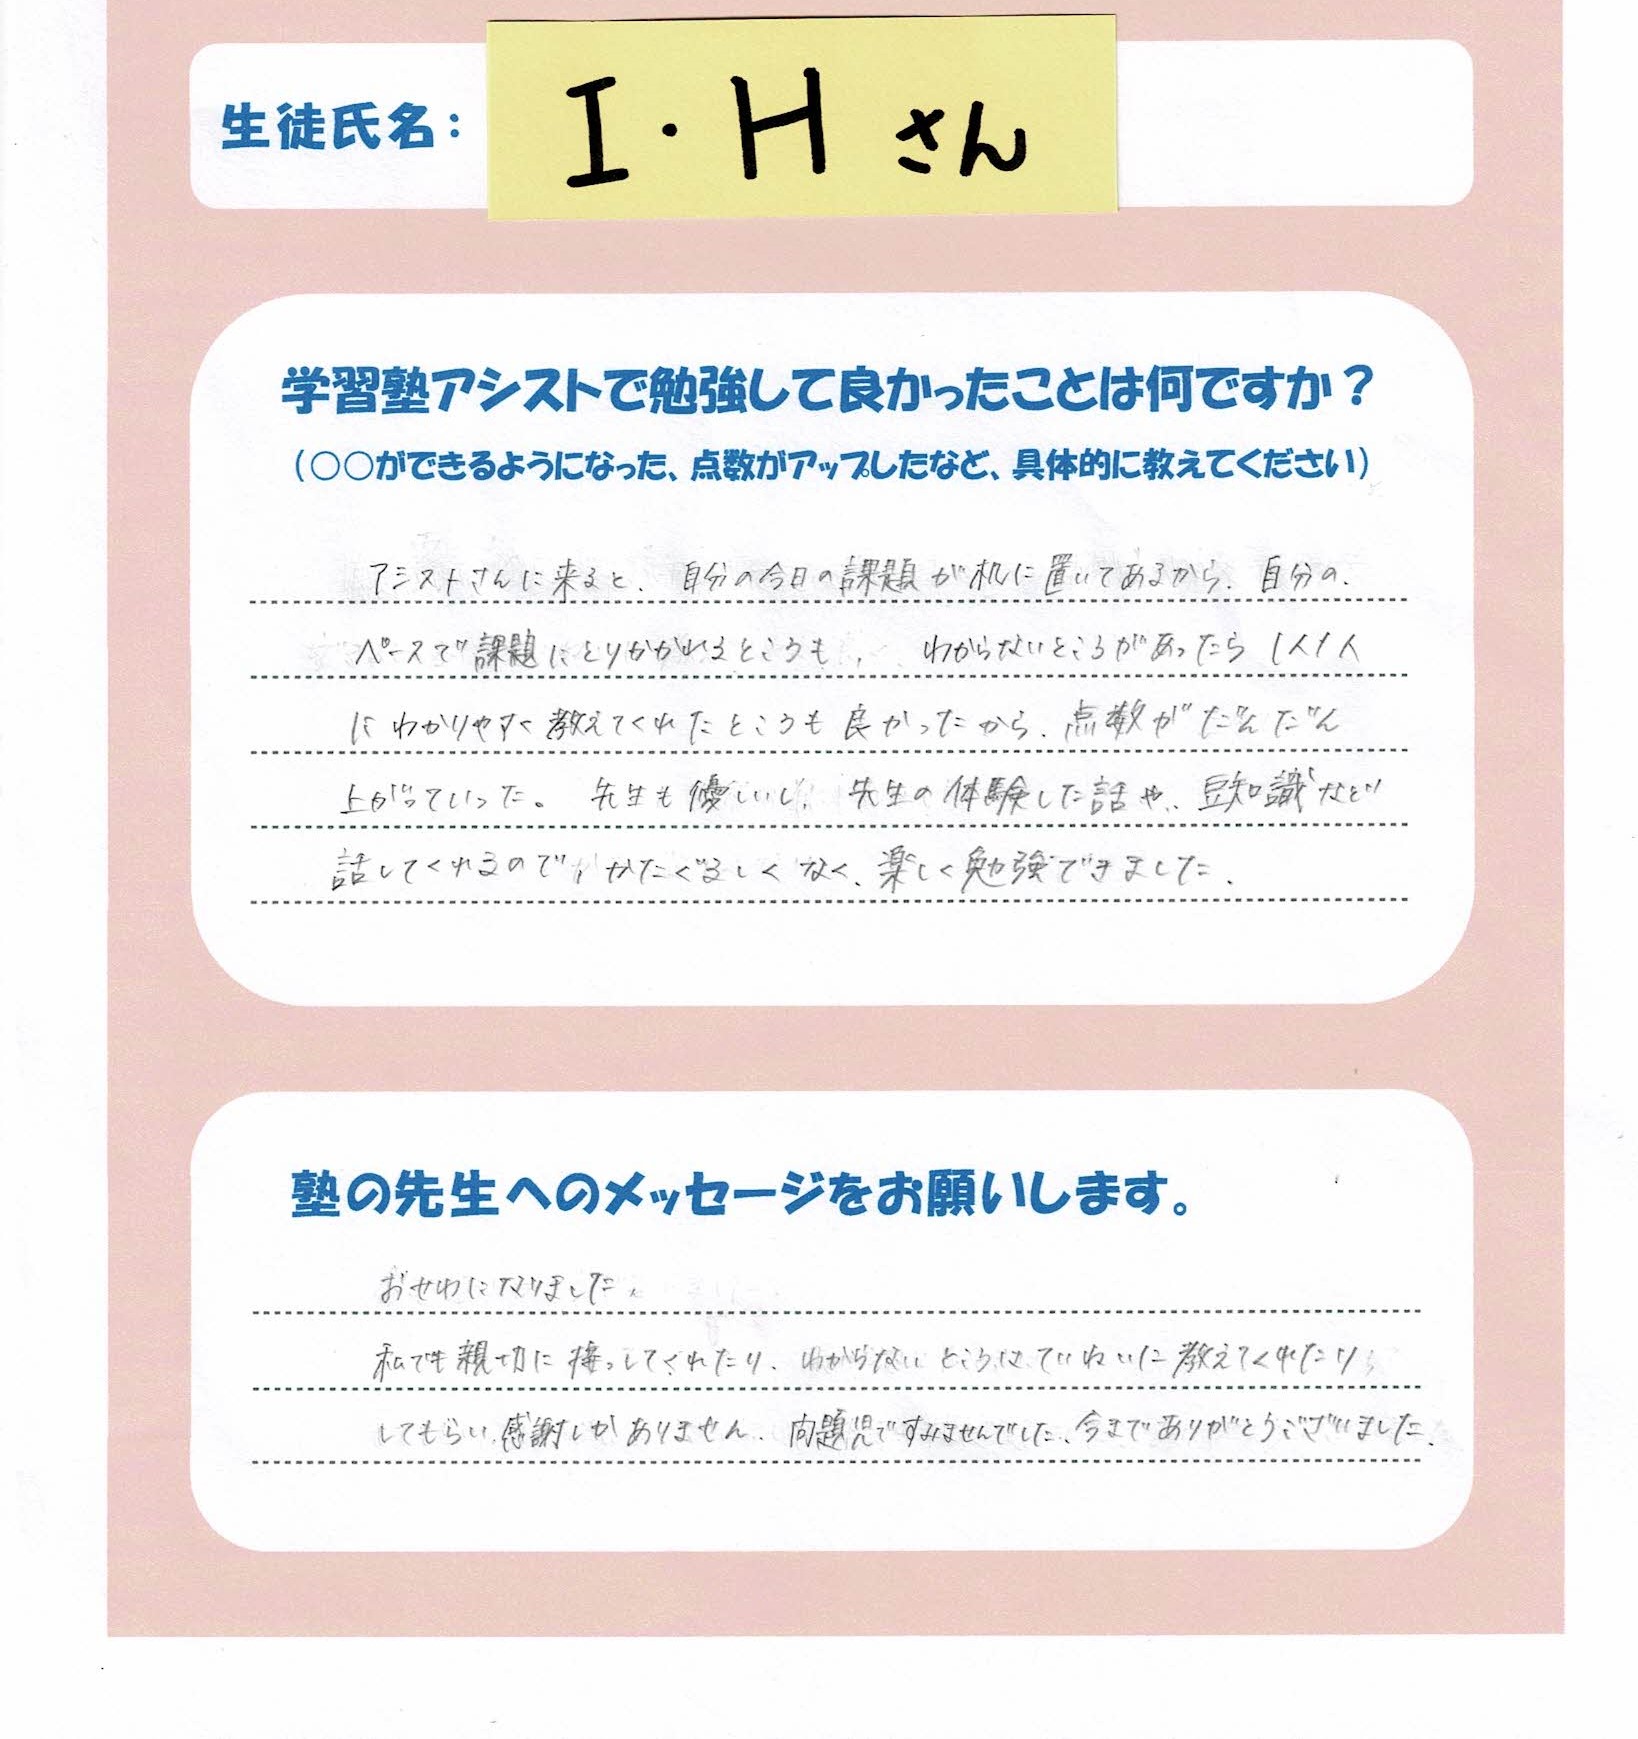 生徒氏名：
I・Hさん
学習塾アシストで勉強して良かったことは何ですか？
（○○ができるようになった、点数がアップしたなど、具体的に教えてください）
アシストさんに来ると、自分の今日の課題が机に置いてあるから、自分の、
ペースで課題にとりかかれるところも、わからないところがあったら1人1人
にわかりやすく教えてくれたところも良かったから、点数がだんだん
上がっていった。先生も優しいし、先生の体験した話や、豆知識など
話してくれるので、かたくるしくなく、楽しく勉強できました。
塾の先生へのメッセージをお願いします。
おせわになりました。
私でも親切に接っしてくれたり、わからないところはていねいに教えてくれたり、
してもらい、感謝しかありません。問題児ですみませんでした、今までありがとうございました。